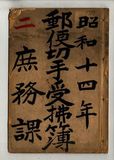 昭和十四年
郵便切手受拂簿
二
庶務課